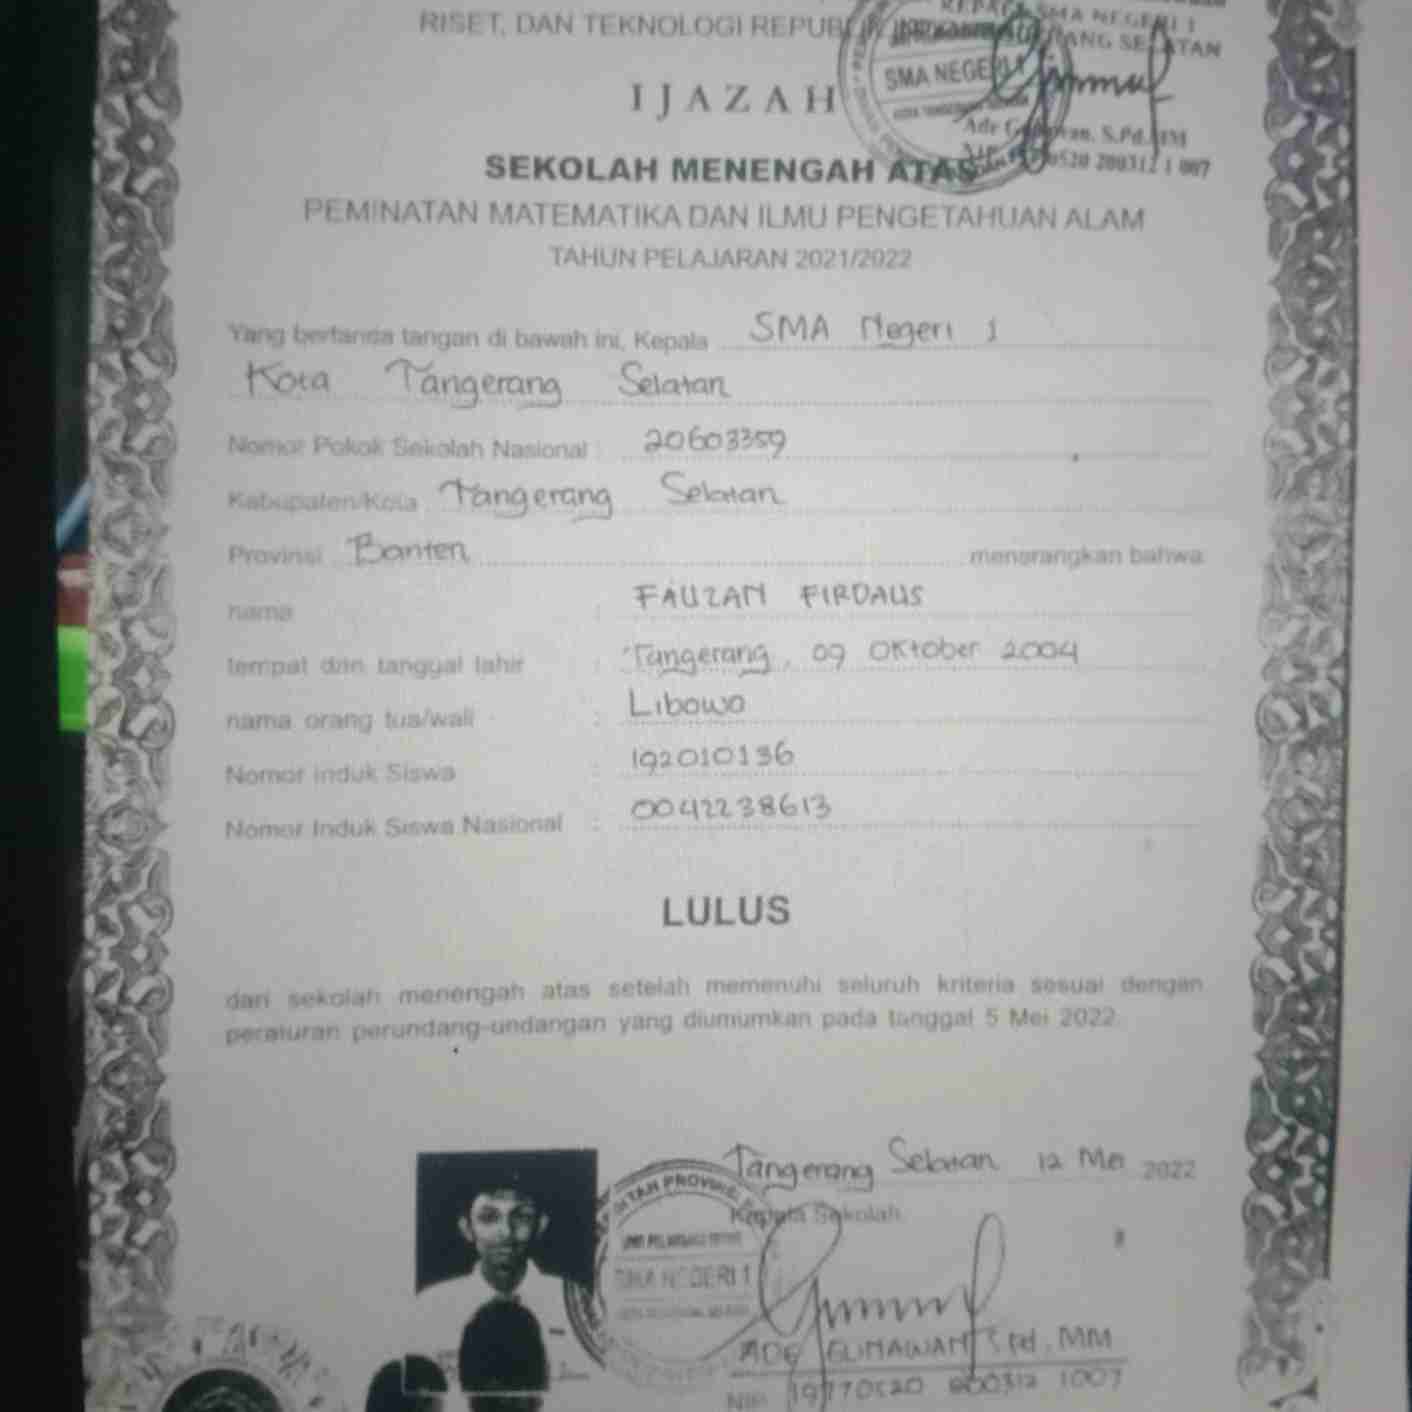 RISET, DAN TEKNOLOGI REPUBLIK INDONESIA
KEPALA SMA NEGERI 1
TANGERANG SELATAN
SMA NEGERI 1
IJAZAH
Ade S.Pd. MM
0520 200312 1 007
SEKOLAH MENENGAH ATAS
PEMINATAN MATEMATIKA DAN ILMU PENGETAHUAN ALAM
TAHUN PELAJARAN 2021/2022
Yang bertanda tangan di bawah ini, Kepala SMA Negeri 1
Kota Tangerang Selatan
Nomor Pokok Sekolah Nasional : 20603359
Kabupaten/Kota Tangerang Selatan
Provinsi Banten menerangkan bahwa
nama : FAUZAN FIRDAUS
tempat dan tanggal lahir : Tangerang, 09 Oktober 2004
nama orang tua/wali : Libowo
Nomor Induk Siswa : 192010136
Nomor Induk Siswa Nasional : 0042238613
LULUS
dari sekolah menengah atas setelah memenuhi seluruh kriteria sesuai dengan
peraturan perundang-undangan yang diumumkan pada tanggal 5 Mei 2022.
Tangerang Selatan 12 Mei 2022
Kepala Sekolah
SMA NEGERI 1
ADE GUNAWAN S.Pd, MM
NIP. 19770520 200312 1007